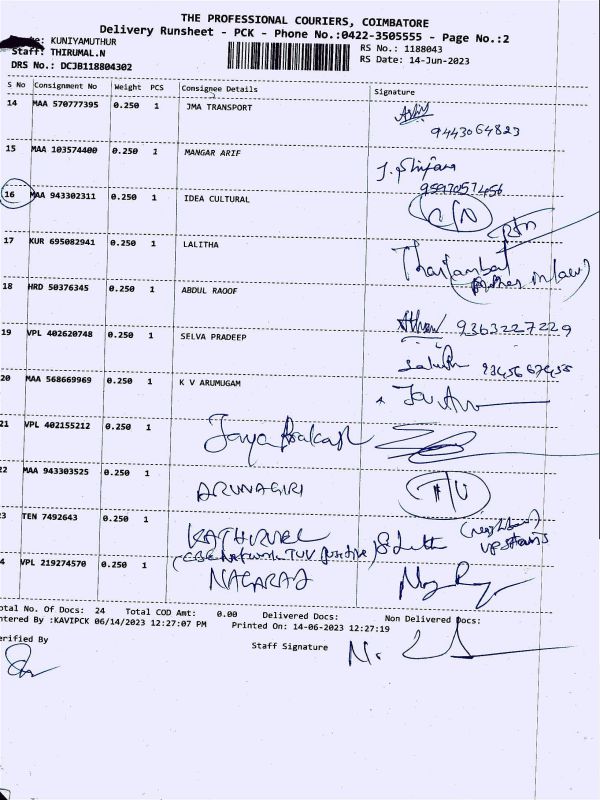 THE PROFESSIONAL COURIERS, COIMBATORE
Delivery Runsheet - PCK - Phone No.:0422-3505555 - Page No.:2
KUNIYAMUTHUR
RS No.: 1188043
Staff: THIRUMAL.N
RS Date: 14-Jun-2023
DRS No.: DCJB118804302
S No Consignment No Weight PCS Consignee Details Signature
14 MAA 570777395 0.250 1 JMA TRANSPORT
9443064823
15 MAA 103574400 0.250 1 MANGAR ARIF
16 MAA 943302311 0.250 1 IDEA CULTURAL
17 KUR 695082941 0.250 1 LALITHA
in law)
18 HRD 50376345 0.250 1 ABDUL RAOOF
9363227229
19 VPL 402620748 0.250 1 SELVA PRADEEP
20 MAA 568669969 0.250 1 K V ARUMUGAM
21 VPL 402155212 0.250 1 Jaya Prakash
22 MAA 943303525 0.250 1 ARUNAGIRI
23 TEN 7492643 0.250 1 KATHIRVEL
upstairs
24 VPL 219274570 0.250 1 NAGARAJ
Total No. Of Docs: 24 Total COD Amt: 0.00 Delivered Docs: Non Delivered Docs:
Entered By :KAVIPCK 06/14/2023 12:27:07 PM Printed On: 14-06-2023 12:27:19
Verified By
Staff Signature